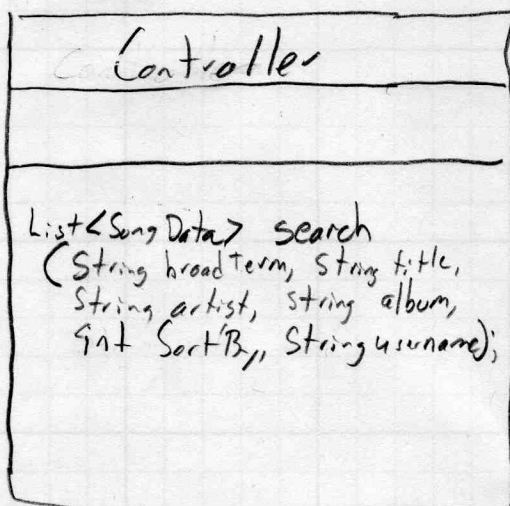 Controller
List<SongData> search
(String broadTerm, String title,
String artist, String album,
int SortBy, String username);